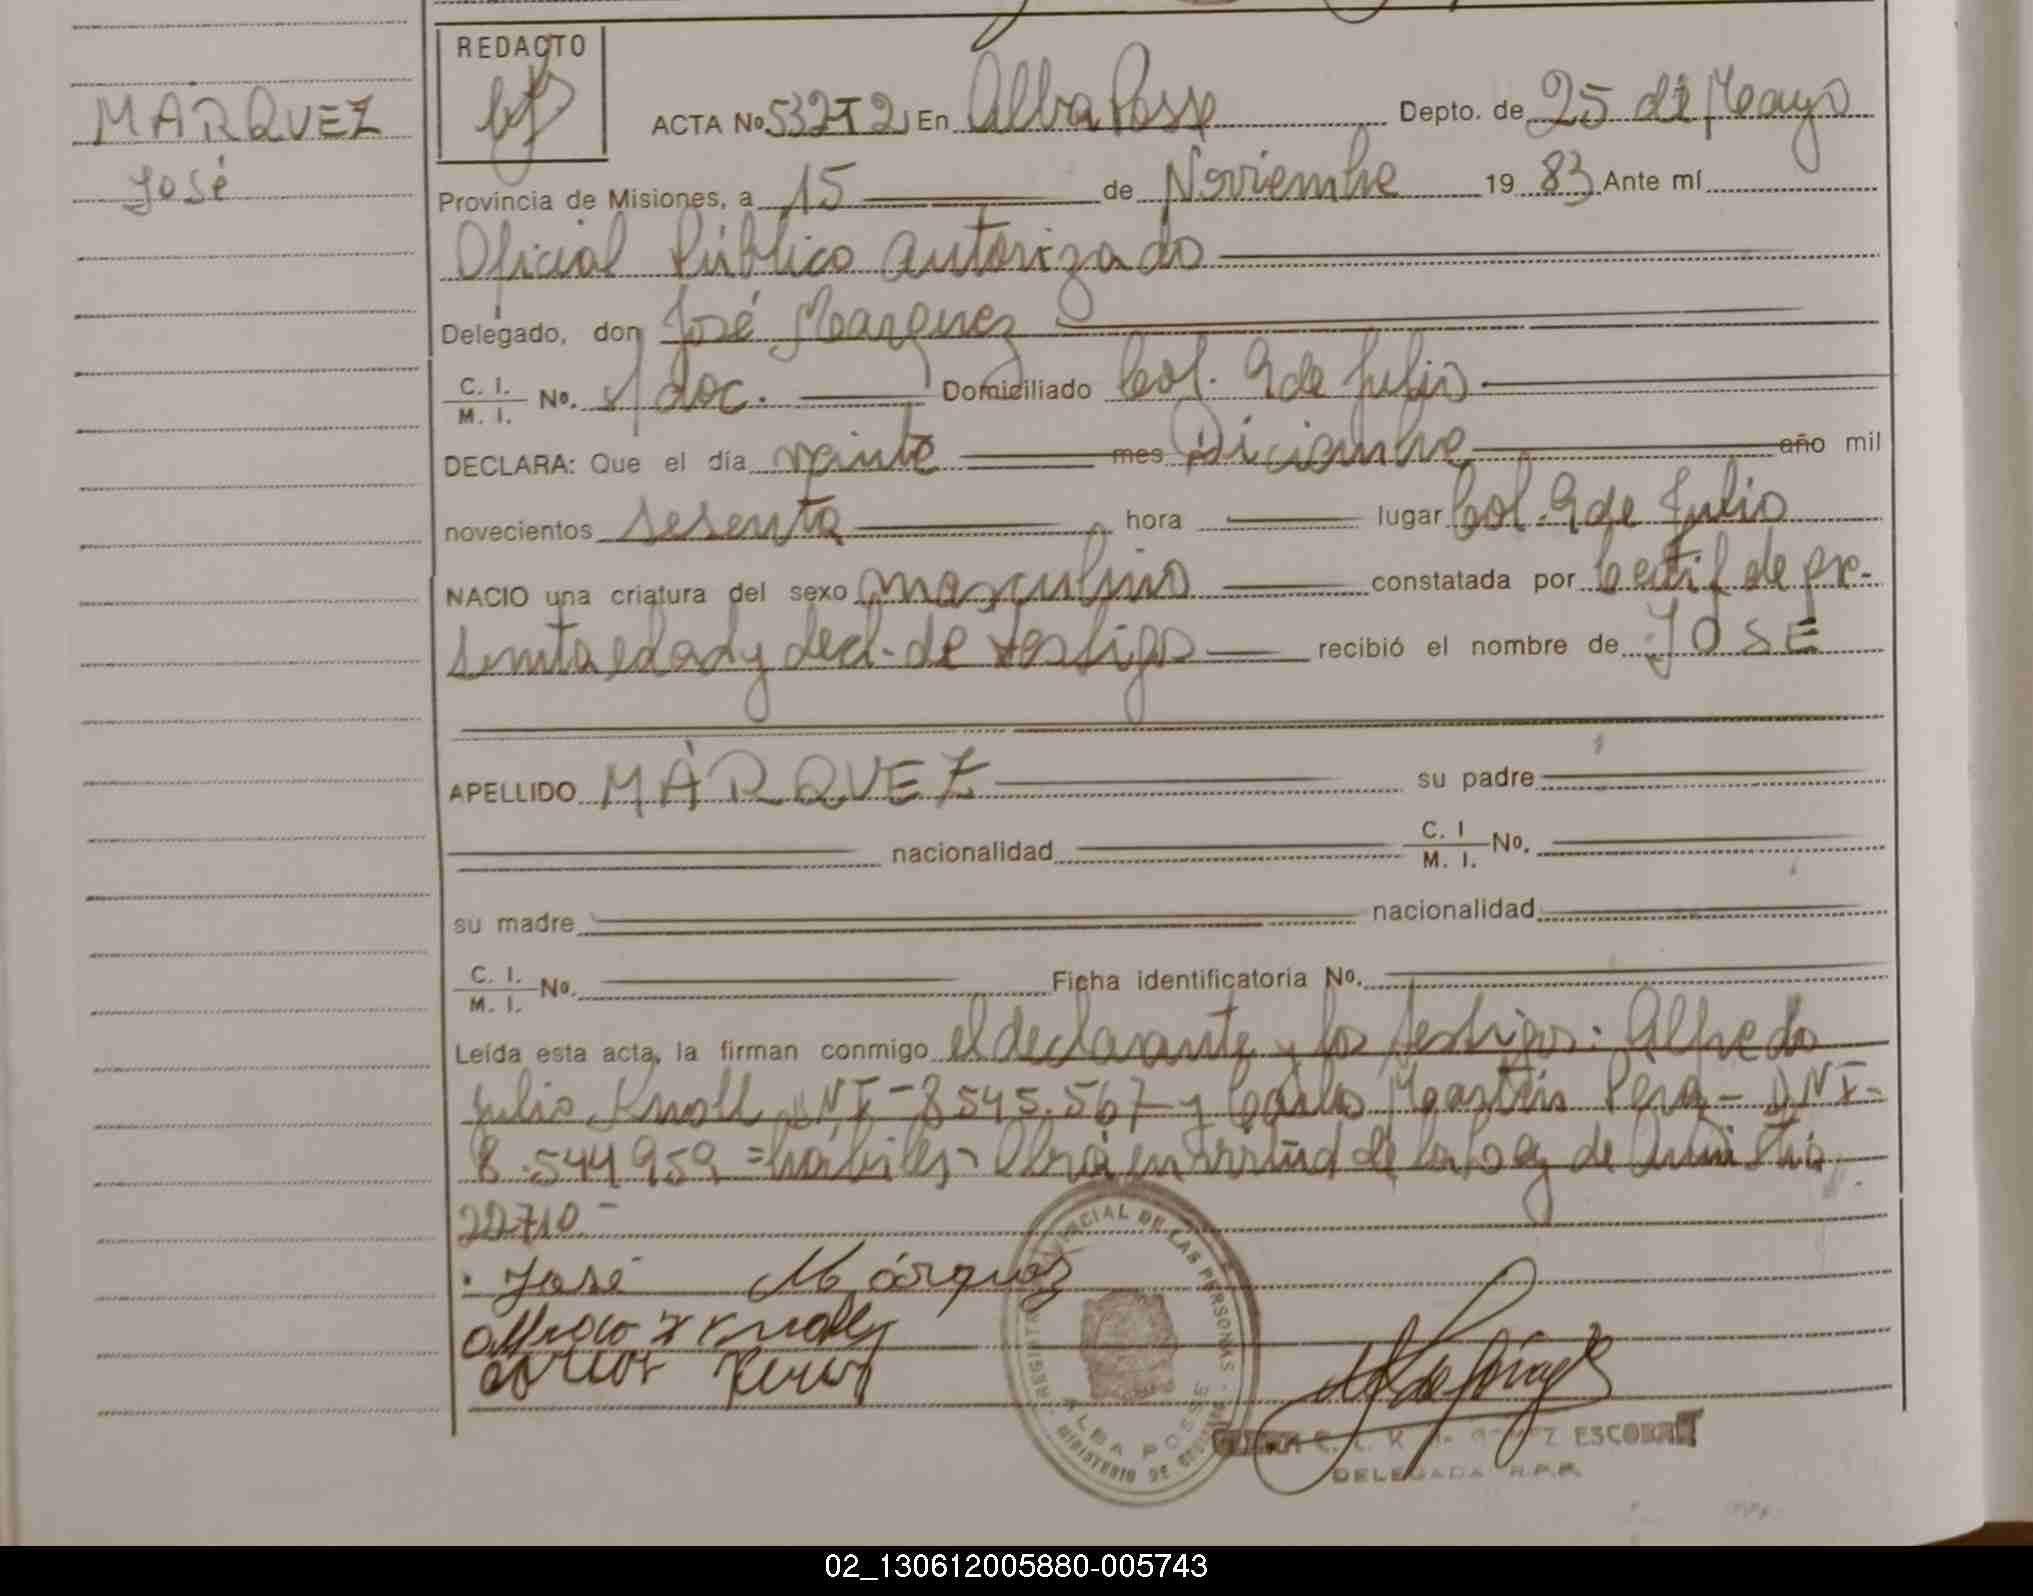 REDACTO
MARQUEZ
José
ACTA No 532-T2 En Alba Posse Depto. de 25 de Mayo
Provincia de Misiones, a 15 de Noviembre 19 83 Ante mí
Oficial Público autorizado
Delegado, don José Marquez
C. I. M. I. No. s/ doc. Domiciliado Col. 9 de Julio
DECLARA: Que el día veinte mes Diciembre año mil
novecientos sesenta hora lugar Col. 9 de Julio
NACIO una criatura del sexo masculino constatada por Certif de pre-
sunta edad y decl. de testigos recibió el nombre de JOSÉ
APELLIDO MÁRQUEZ su padre
nacionalidad C. I M. I. No.
su madre nacionalidad
C. I. M. I. No. Ficha identificatoria No.
Leída esta acta, la firman conmigo el declarante y los testigos: Alfredo
Julio Knoll DNI-8545.567- y Carlos Martín Pera - DNI-
8.544959 = hábiles - en virtud de la Ley de Amnistía
22710
José Márquez
Carlos
REGISTRO PROVINCIAL DE LAS PERSONAS
ALBA POSSE
MINISTERIO DE
ESCOBAR
DELEGADA R.P.P.
02_130612005880-005743